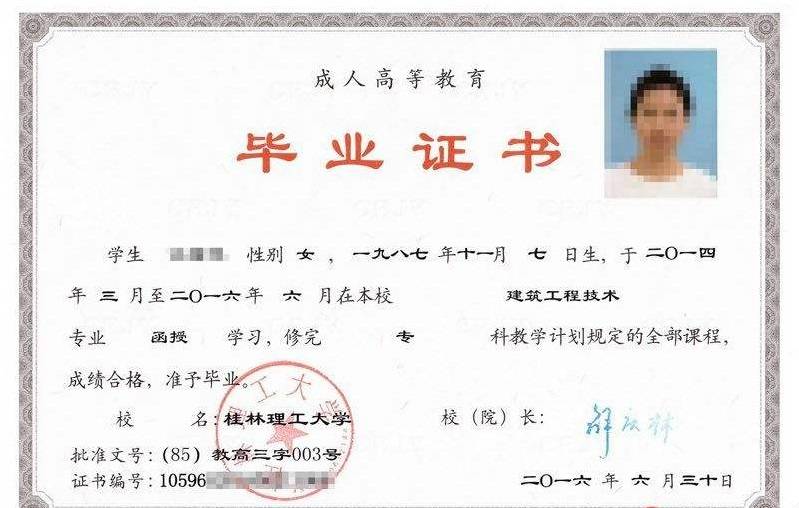 成人高等教育
毕业证书
学生 性别 女，一九八七年十一月 七 日生，于二〇一四
年 三 月至二〇一六年 六 月在本校 建筑工程技术
专业 函授 学习，修完 专 科教学计划规定的全部课程，
成绩合格，准予毕业。
校 名：桂林理工大学 校（院）长：解庆林
批准文号：（85）教高三字003号
证书编号：10596 二〇一六 年 六 月 三十日
理工大学